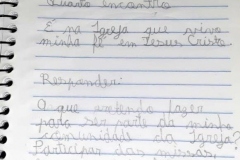 Quarto encontro
É na Igreja que vivo
minha fé em Jesus Cristo
Responder:
O que entendo fazer
para ser parte da minha
comunidade da Igreja?
Participar das missas,